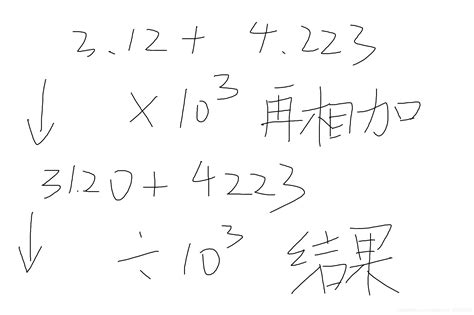 3.12 + 4.223
↓ × 10³ 再相加
3120 + 4223
↓ ÷ 10³ 结果